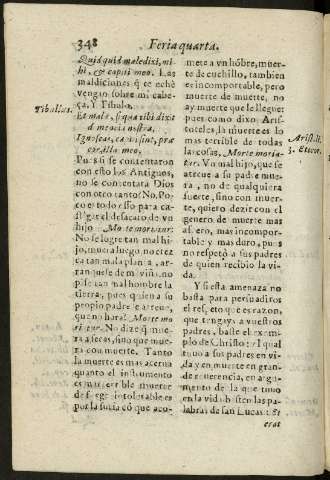 348 Feria quarta.
Quid quid maledixi, mi
hi, & capiti meo. Las
maldiciones q̃ te echè
vengan sobre mi cabe
ça. Y Tibulo.
Tibul.li.1.
Et mala, si qua tibi dixit
dementia nostra,
Ignoscas, capiti sint, præ
cor illa meo.
Pues si se contentaron
con esto los Antiguos,
no se contentarà Dios
con otro tanto? No. Po
co es todo esso para ca
stigar el desacato de vn
hijo. Morte moriatur:
No se logre tan mal hi
jo, muera luego, no etez
ca tan mala planta, ar
ranquese de mi viña, no
pise tan mal hombre la
tierra, pues quien a su
propio padre se atreue,
que no harà? Morte mo
riatur. No dize q̃ mue
ra a secas, sino que mue
ra con muerte. Tanto
la muerte es mas acerua
quanto el instrumento
es mas terrible muerte
de fuego intolerable es
por la furia cõ que aco-
mete a vn hõbre, muer-
te de cuchillo, tambien
es incomportable, pero
muerte de muerte, no
ay muerte que le llegue:
pues como dixo Aris-
toteles, la muerte es lo
mas terrible de todas
las cosas. Morte moria-
tur. Vn mal hijo, que se
atreue a su padre mue-
ra, no de qualquiera
suerte, sino con muer-
te, quiero dezir con el
genero de muerte mas
afero, mas incompor-
table y mas duro, pues
no respetò a sus padres
de quien recibio la vi-
da.
Y si esta amenaza no
basta para persuadiros
el res, eto que es razon,
que tengays a vuestros
padres, baste el exem-
plo de Christo: el qual
tuuo a sus padres en vi-
da y en muerte en gran-
de reuerencia, en argu-
mento de la que tuuo
en la vida basten las pa-
labras de san Lucas: Et
erat